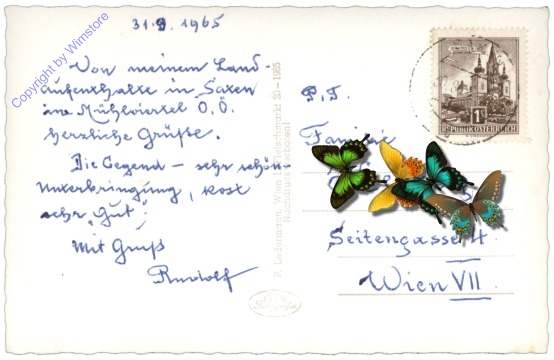 31.9.1965
Von meinem Land-
aufenthalte in Saxen
im Mühlviertel O.Ö.
herzliche Grüße.
Die Gegend - sehr schön
Unterbringung, Kost
sehr "Gut".
Mit Gruß
Rudolf
Copyright by Wimstore
P. Ledermann, Wien, Fleischmarkt 20 - 1965
Nachdruck verboten!
1S
REPUBLIK ÖSTERREICH
P.T.
Familie
Seitengasse 4
Wien VII